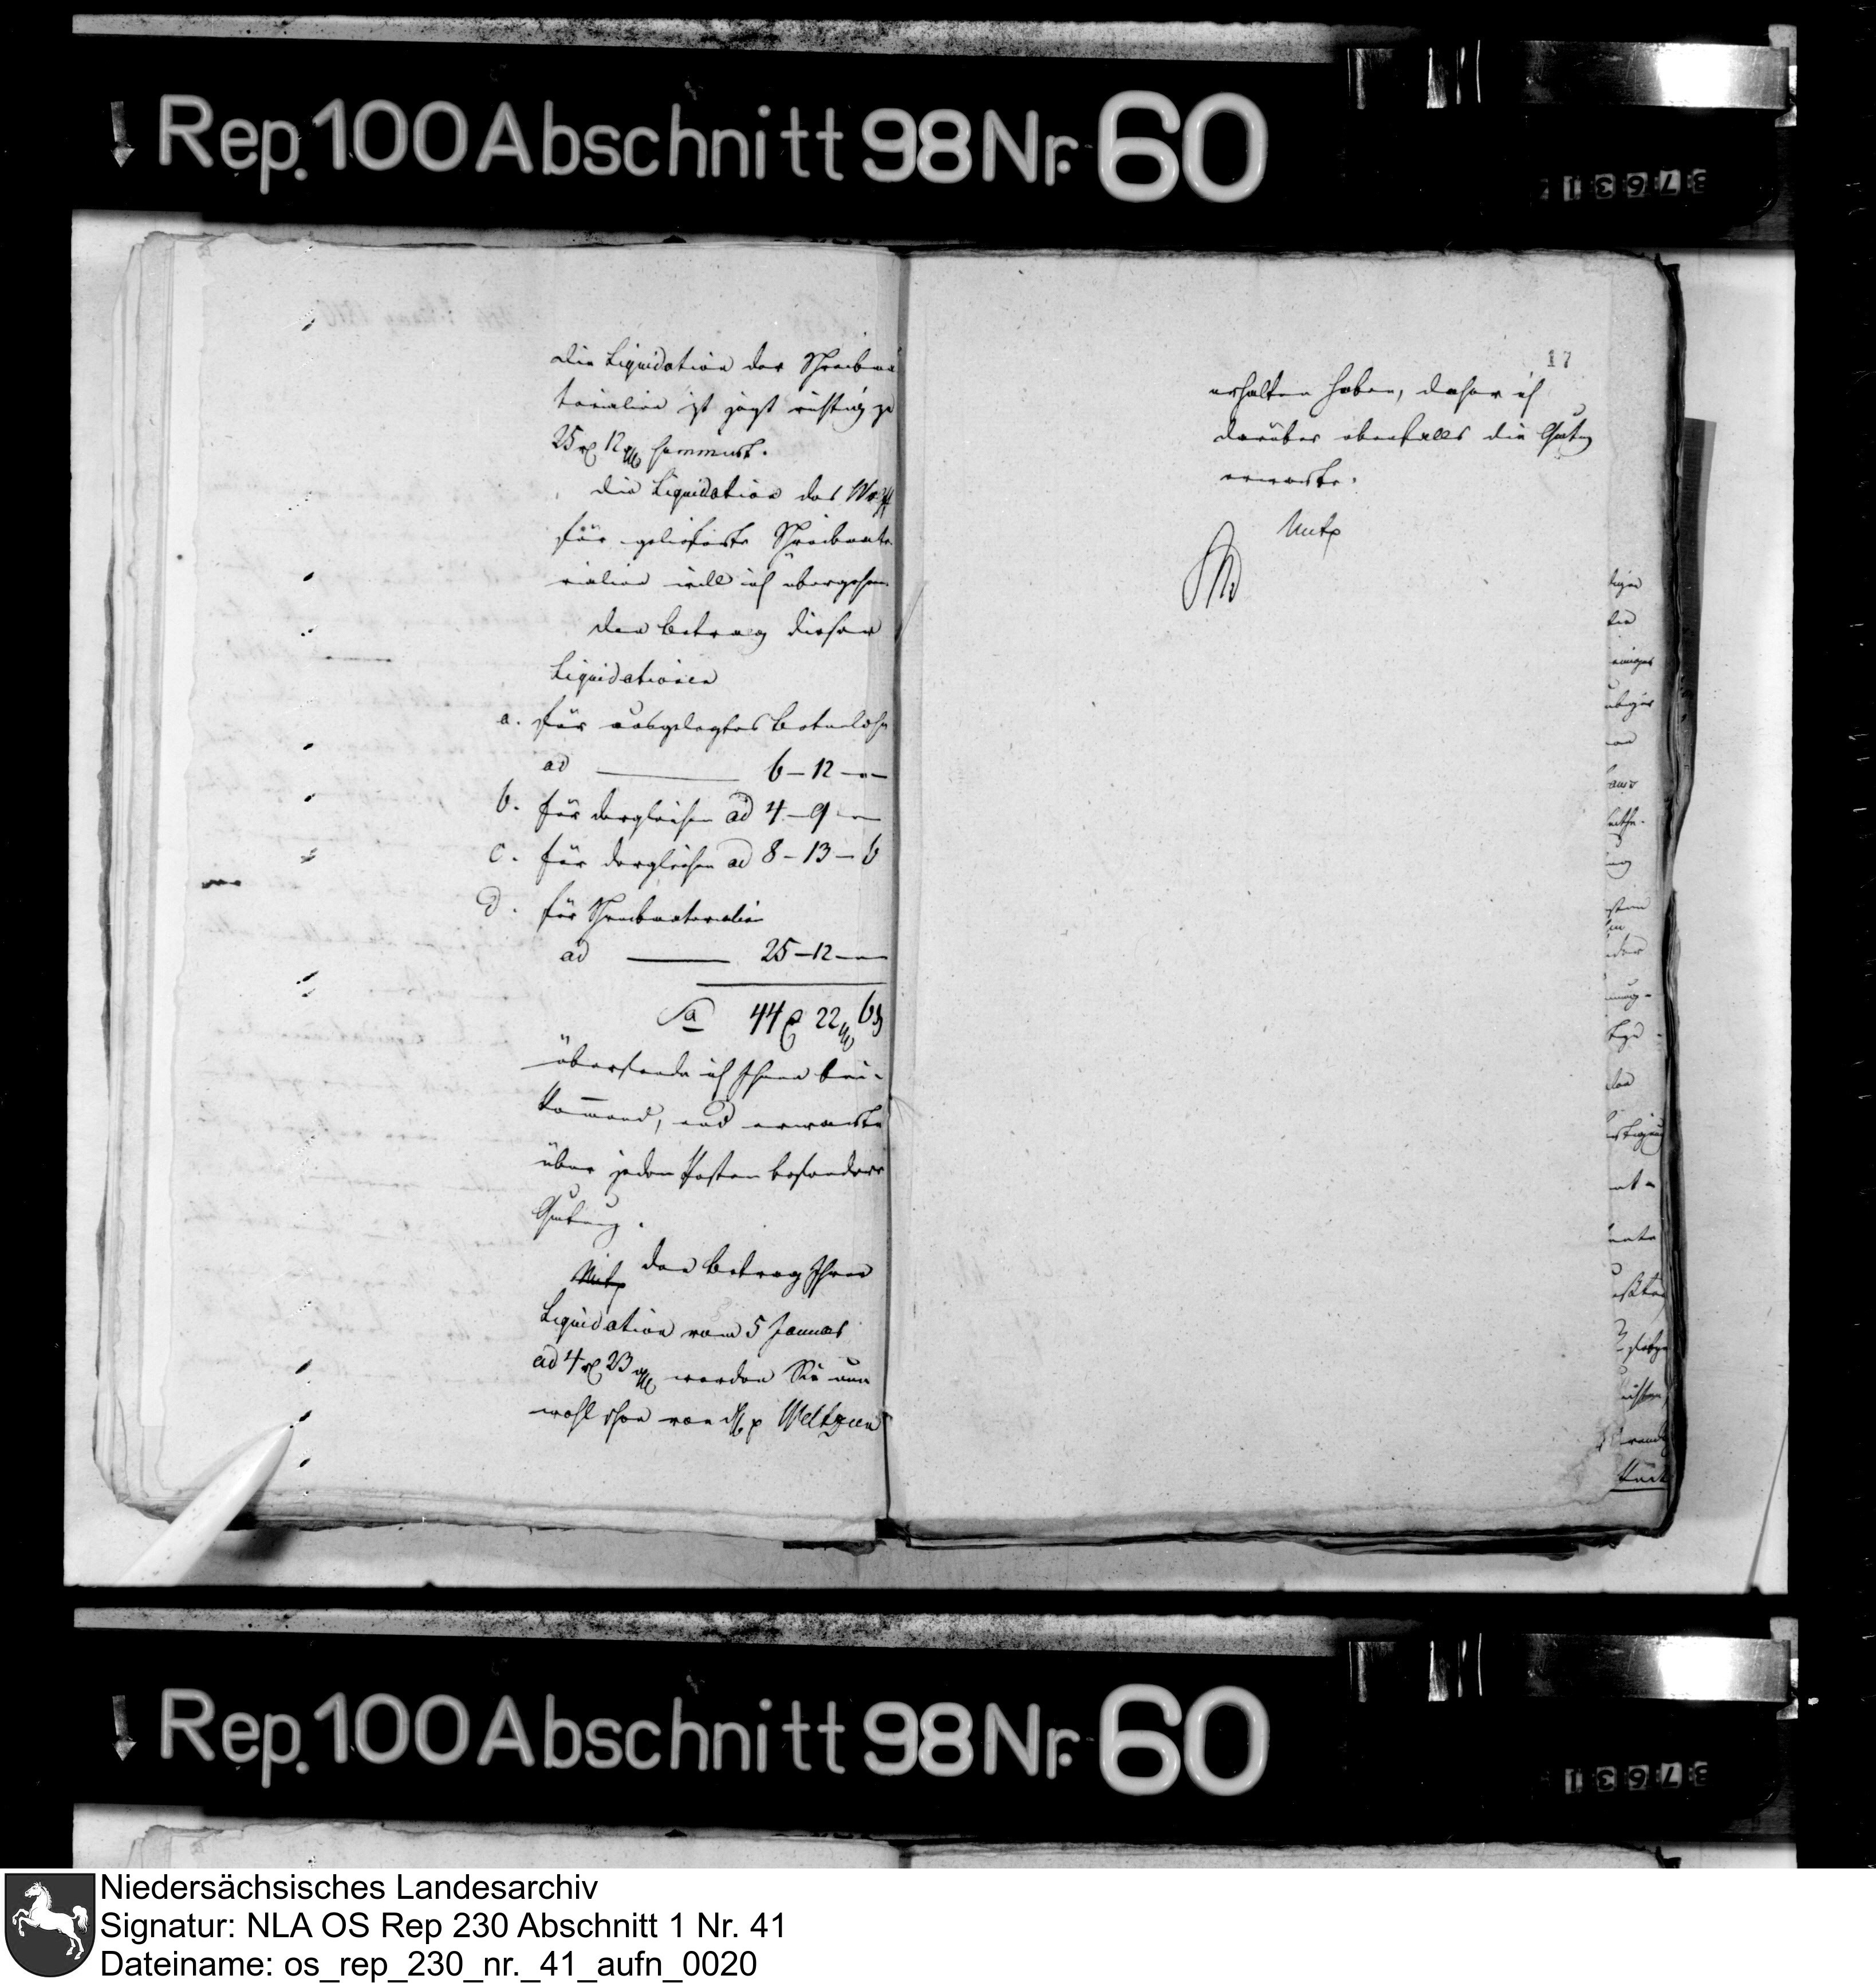 Rep. 100 Abschnitt 98 Nr. 60
die Liquidation der Schreibma
terialien ist jetzt richtig zu
25 rℓ 12 ggl summirt.
die Liquidation des
für gelieferte Schreibmate
rialien will ich übergehen
Den Betrag dieser
Liquidationen
a. für ausgelegtes Botenlohn
ad — 6 – 12 –
b. für dergleichen ad 4 – 9 –
c. für dergleichen ad 8 – 13 – 6
d. für Schreibmaterialien
ad — 25 – 12 –
Sa 44 rℓ 22 ggl 6 ₰
übersende ich Ihnen bei-
kommend, und erwarte
über jeden Posten besondere
Quitung.
den Betrag Ihrer
Liquidation vom 5 Januar
ad 4 rℓ 23 ggl werden Sie nun
wohl schon von Weltzien
17
erhalten haben, daher ich
darüber ebenfalls die Quitung
erwarte.
Rep. 100 Abschnitt 98 Nr. 60
Niedersächsisches Landesarchiv
Signatur: NLA OS Rep 230 Abschnitt 1 Nr. 41
Dateiname: os_rep_230_nr._41_aufn_0020